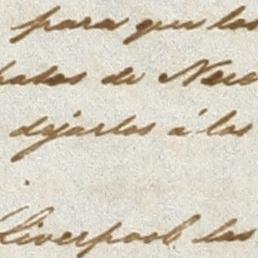 para que los
de
dejarlos á los
Liverpool las